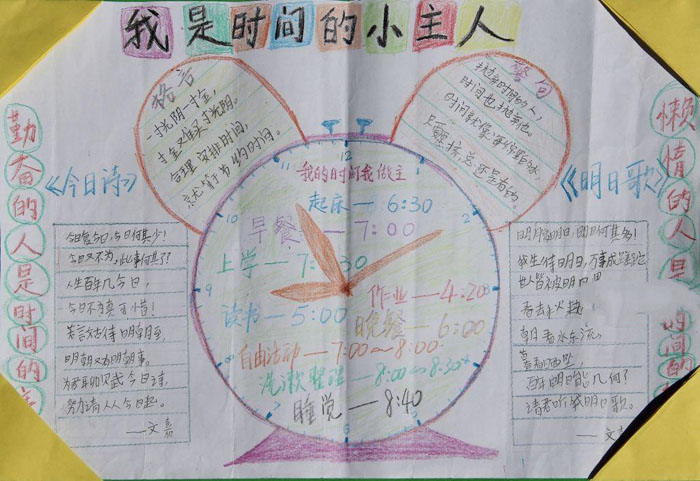 我是时间的小主人
格言
一寸光阴一寸金,
寸金难买寸光阴。
合理安排时间,
就等于节约时间。
警句
抛弃时间的人,
时间也抛弃他。
勤奋的人是时间的主
懒惰的人是 时间的
《今日诗》
今日复今日,今日何其少!
今日又不为,此事何其了?
人生百年几今日,
今日不为真可惜!
若言姑待明朝至,
明朝又有明朝事。
为君聊赋今日诗,
努力请从今日起。
——文嘉
《明日歌》
明日复明日,明日何其多!
我生待明日,万事成蹉跎
世人皆被明日
朝看水东流,
百年明日能几何?
请君听我明日歌。
——文嘉
12
“我的时间我做主
起床—6:30
早餐—7:00
上学—7:30
作业—4:20
读书—5:00
晚餐—6:00
自由活动—7:00~8:00
洗漱整理—8:00~8:30
睡觉—8:40